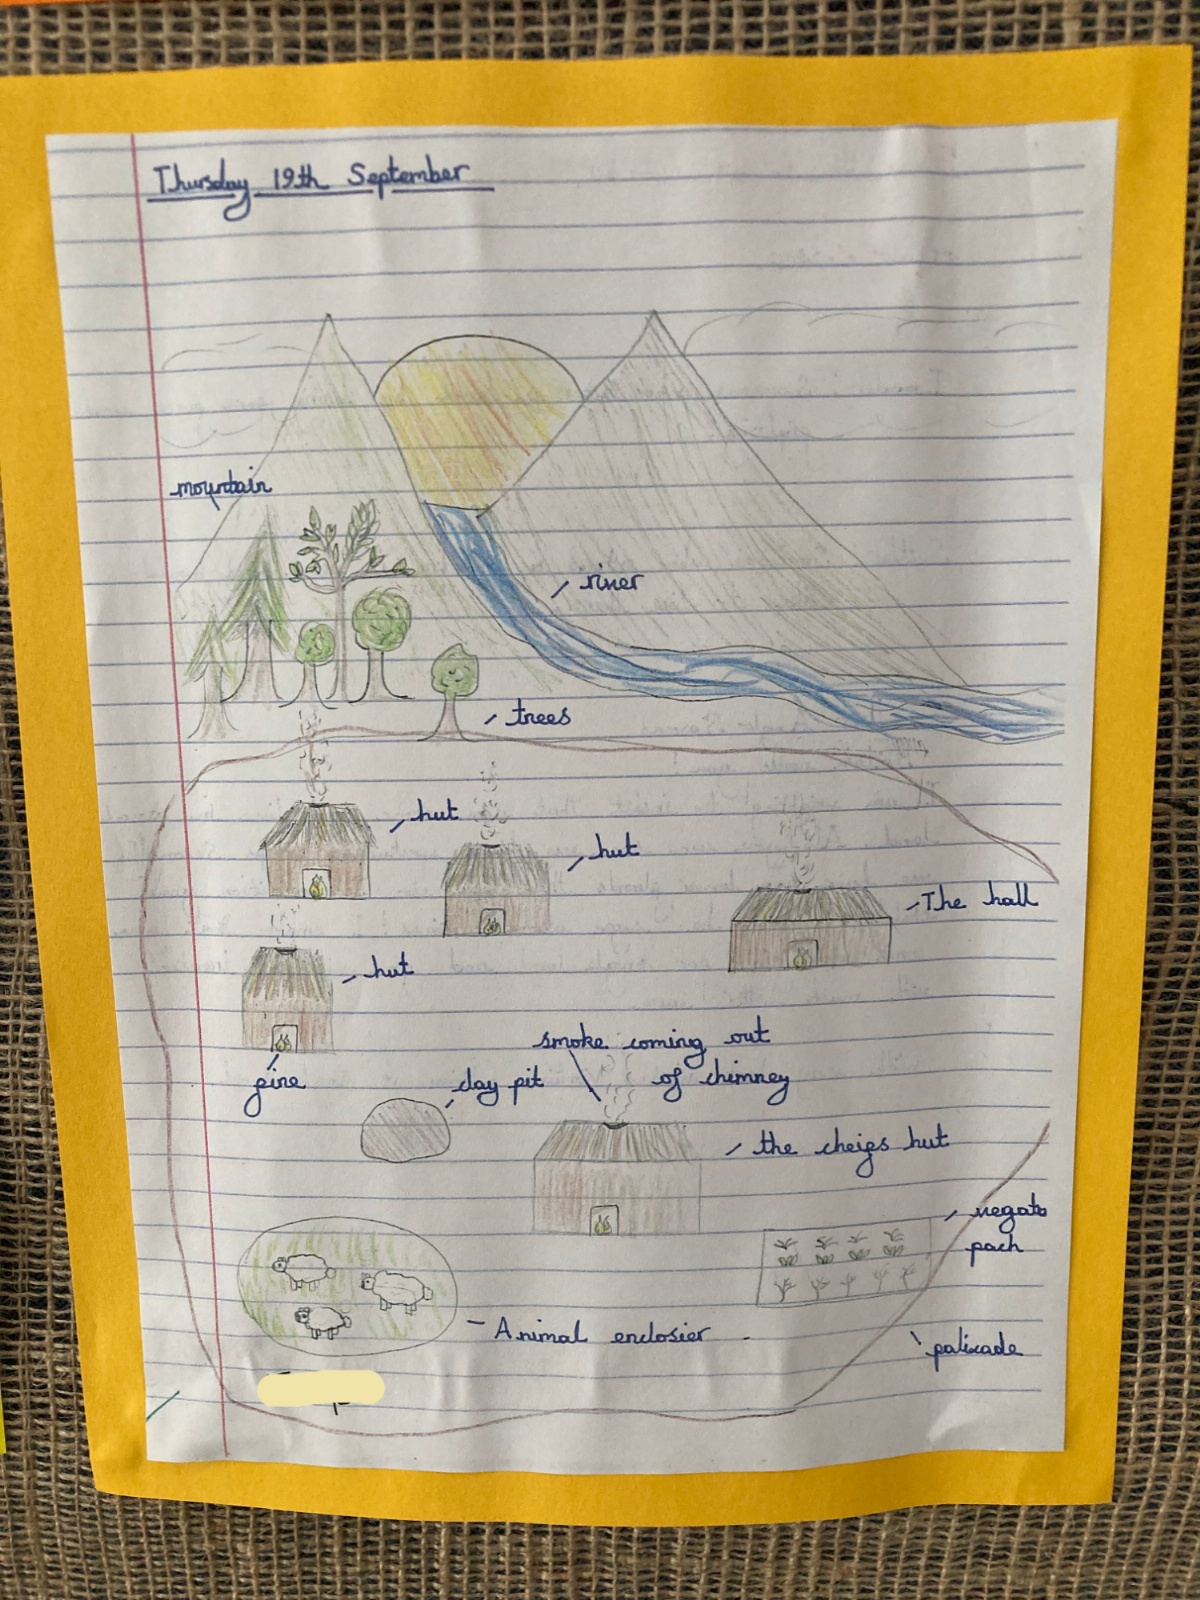 Thursday 19th September
mountain
river
trees
hut
hut
The hall
hut
smoke coming out
of chimney
fire
clay pit
the cheifs hut
vegato
pach
Animal enclosier
palisade